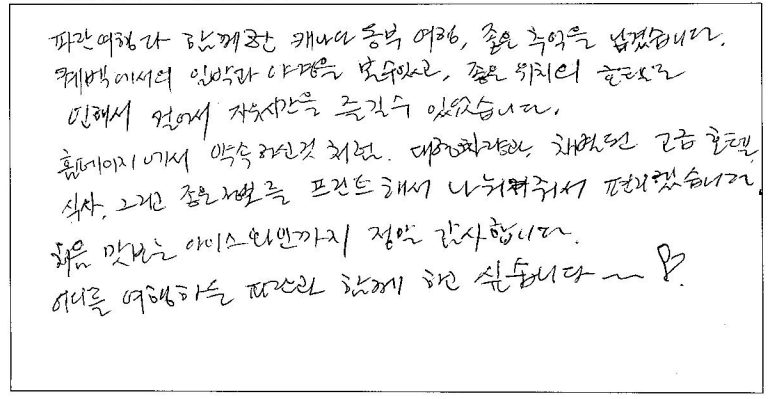 파란여행과 함께한 캐나다 동부 여행, 좋은 추억을 남겼습니다.
퀘백에서의 일박과 야경을 볼수있었고, 좋은 위치의 호텔로
인해서 걸어서 자유시간을 즐길수 있었습니다.
홈페이지에서 약속하신것 처럼. 대형차량과, 차별된 고급 호텔,
식사, 그리고 좋은 정보를 프린트해서 나눠줘서 편리했습니다.
처음 맛보는 아이스와인까지 정말 감사합니다.
어디를 여행하든 파란과 함께 하고 싶습니다~